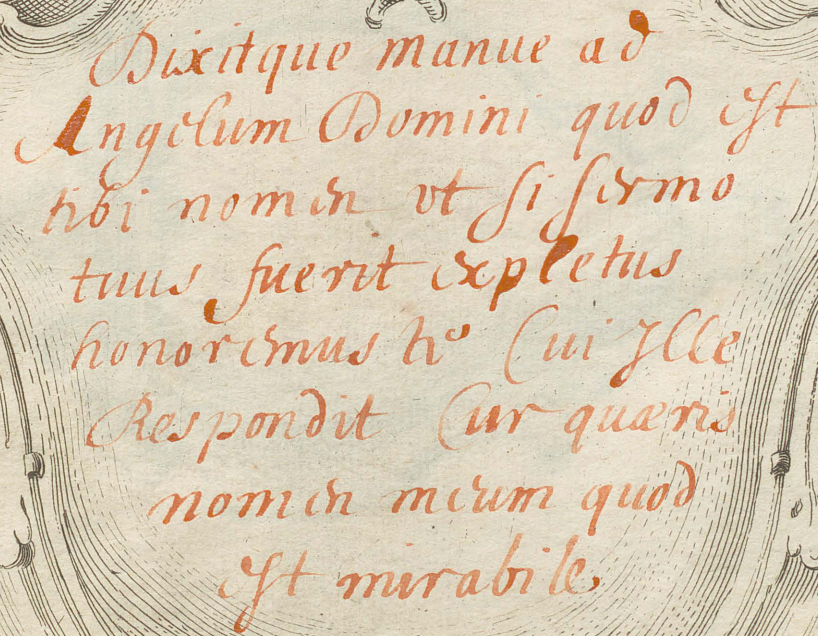 Dixitque manue ad
Angelum Domini quod est
tibi nomen vt si sermo
tuus fuerit expletus
honoremus te Cui Ille
Respondit Cur quæris
nomen meum quod
est mirabile